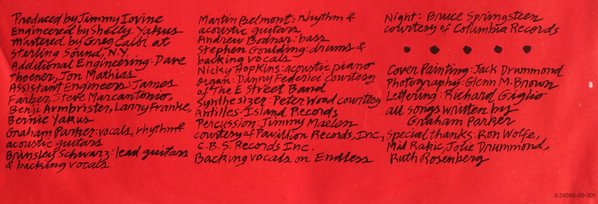 Produced by Jimmy Iovine
Engineered by Shelly Yakus
Mastered by Greg Calbi at
Sterling Sound, N.Y.
Additional Engineering: Dave
Thoener, Jon Mathias
Assistant Engineers: James
Farber, Steve Marcantonio,
Geric Armbrister, Larry Franke,
Bernie Yakus
Graham Parker: vocals, rhythm &
acoustic guitars
Brinsley Schwarz: lead guitars
& backing vocals
Martin Belmont: rhythm &
acoustic guitars
Andrew Bodnar: bass
Stephen Goulding: drums &
backing vocals
Nicky Hopkins: acoustic piano
Organ: Danny Federici courtesy
of The E Street Band
Synthesizer: Peter Wood courtesy
Antilles-Island Records
Percussion: Jimmy Maelen
courtesy of Pavilion Records, Inc.,
C.B.S. Records Inc.
Backing vocals on Endless
Night: Bruce Springsteen
courtesy of Columbia Records
Cover Painting: Jack Drummond
Photography: Glenn M. Brown
Lettering: Richard Giglio
all songs written by
Graham Parker
Special thanks: Ron Wolfe,
Mil Rakic, Jolie Drummond,
Ruth Rosenberg
6.24358-00-301